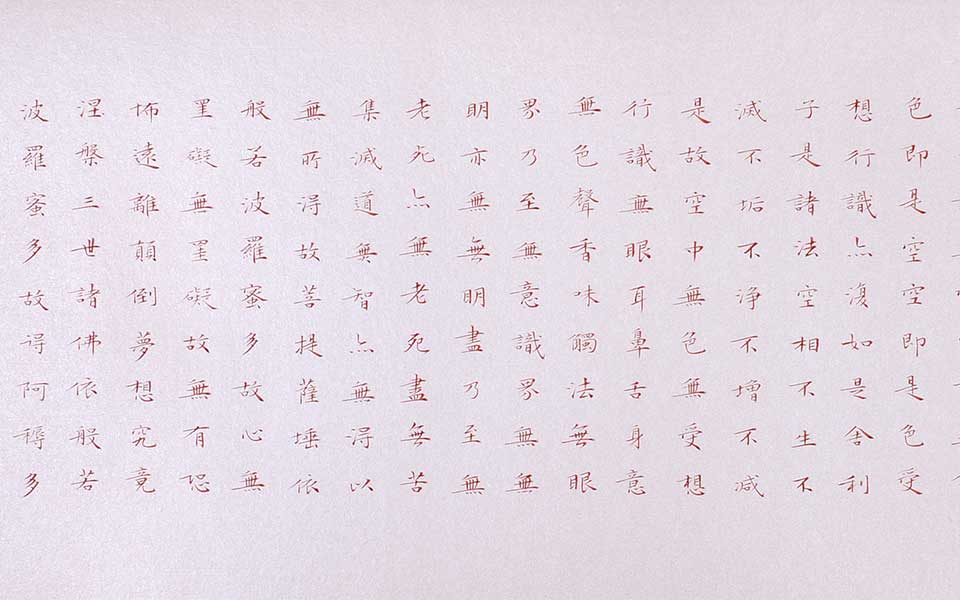 色即是空空即是色受
想行識亦復如是舍利
子是諸法空相不生不
滅不垢不淨不增不減
是故空中無色無受想
行識無眼耳鼻舌身意
無色聲香味觸法無眼
界乃至無意識界無無
明亦無無明盡乃至無
老死亦無老死盡無苦
集滅道無智亦無得以
無所得故菩提薩埵依
般若波羅蜜多故心無
罣礙無罣礙故無有恐
怖遠離顛倒夢想究竟
涅槃三世諸佛依般若
波羅蜜多故得阿耨多